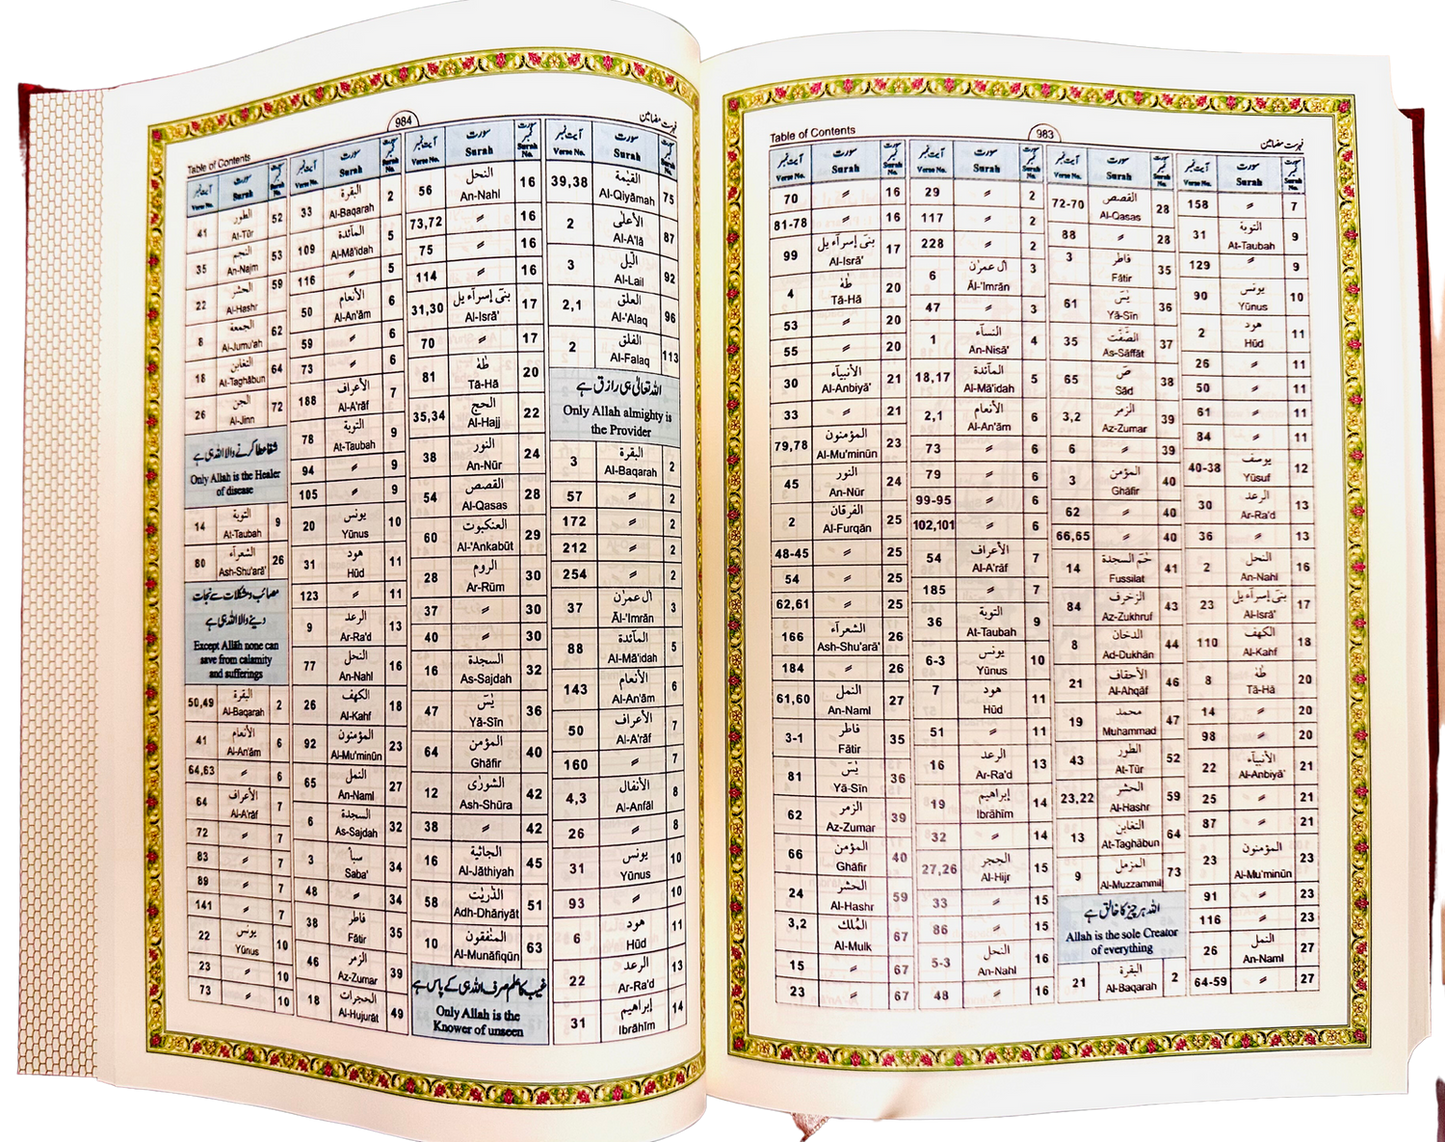 Table of Contents 983 فہرست مضامین
آیت نمبر سورت سورت نمبر
Verse No. Surah Surah No.
158 〃 7
31 التوبة 9
At-Taubah
129 〃 9
90 يونس 10
Yūnus
2 هود 11
Hūd
26 〃 11
50 〃 11
61 〃 11
84 〃 11
40-38 يوسف 12
Yūsuf
30 الرعد 13
Ar-Ra'd
36 〃 13
2 النحل 16
An-Nahl
23 بنی إسرآءيل 17
Al-Isrā'
110 الكهف 18
Al-Kahf
8 طٰهٰ 20
Tā-Hā
14 〃 20
98 〃 20
22 الأنبيآء 21
Al-Anbiyā'
25 〃 21
87 〃 21
23 المؤمنون 23
Al-Mu'minūn
91 〃 23
116 〃 23
26 النمل 27
An-Naml
64-59 〃 27
آیت نمبر سورت سورت نمبر
Verse No. Surah Surah No.
72-70 القصص 28
Al-Qasas
88 〃 28
3 فاطر 35
Fātir
61 يٰسٓ 36
Yā-Sīn
35 الصّٰفّٰت 37
As-Sāffāt
65 صٓ 38
Sād
3,2 الزمر 39
Az-Zumar
6 〃 39
3 المؤمن 40
Ghāfir
62 〃 40
66,65 〃 40
14 حٰمٓ السجدة 41
Fussilat
84 الزخرف 43
Az-Zukhruf
8 الدخان 44
Ad-Dukhān
21 الأحقاف 46
Al-Ahqāf
19 محمد 47
Muhammad
43 الطور 52
At-Tūr
23,22 الحشر 59
Al-Hashr
13 التغابن 64
At-Taghābun
9 المزمل 73
Al-Muzzammil
اللہ ہر چیز کا خالق ہے
Allah is the sole Creator
of everything
21 البقرة 2
Al-Baqarah
آیت نمبر سورت سورت نمبر
Verse No. Surah Surah No.
29 〃 2
117 〃 2
228 〃 2
6 اٰل عمرٰن 3
Āl-'Imrān
47 〃 3
1 النسآء 4
An-Nisā'
18,17 المآئدة 5
Al-Mā'idah
2,1 الأنعام 6
Al-An'ām
73 〃 6
79 〃 6
99-95 〃 6
102,101 〃 6
54 الأعراف 7
Al-A'rāf
185 〃 7
36 التوبة 9
At-Taubah
6-3 يونس 10
Yūnus
7 هود 11
Hūd
51 〃 11
16 الرعد 13
Ar-Ra'd
19 إبراهيم 14
Ibrāhīm
32 〃 14
27,26 الحجر 15
Al-Hijr
33 〃 15
86 〃 15
5-3 النحل 16
An-Nahl
48 〃 16
آیت نمبر سورت سورت نمبر
Verse No. Surah Surah No.
70 〃 16
81-78 〃 16
99 بنی إسرآءيل 17
Al-Isrā'
4 طٰهٰ 20
Tā-Hā
53 〃 20
55 〃 20
30 الأنبيآء 21
Al-Anbiyā'
33 〃 21
79,78 المؤمنون 23
Al-Mu'minūn
45 النور 24
An-Nūr
2 الفرقان 25
Al-Furqān
48-45 〃 25
54 〃 25
62,61 〃 25
166 الشعرآء 26
Ash-Shu'arā'
184 〃 26
61,60 النمل 27
An-Naml
3-1 فاطر 35
Fātir
81 يٰسٓ 36
Yā-Sīn
62 الزمر 39
Az-Zumar
66 المؤمن 40
Ghāfir
24 الحشر 59
Al-Hashr
3,2 المُلك 67
Al-Mulk
15 〃 67
23 〃 67
Table of Contents 984 فہرست مضامین
آیت نمبر سورت سورت نمبر
Verse No. Surah Surah No.
39,38 القيٰمة 75
Al-Qiyāmah
2 الأعلٰى 87
Al-A'lā
3 الّيل 92
Al-Lail
2,1 العلق 96
Al-'Alaq
2 الفلق 113
Al-Falaq
اللہ تعالیٰ ہی رازق ہے
Only Allah almighty is
the Provider
3 البقرة 2
Al-Baqarah
57 〃 2
172 〃 2
212 〃 2
254 〃 2
37 اٰل عمرٰن 3
Āl-'Imrān
88 المآئدة 5
Al-Mā'idah
143 الأنعام 6
Al-An'ām
50 الأعراف 7
Al-A'rāf
160 〃 7
4,3 الأنفال 8
Al-Anfāl
26 〃 8
31 يونس 10
Yūnus
93 〃 10
6 هود 11
Hūd
22 الرعد 13
Ar-Ra'd
31 إبراهيم 14
Ibrāhīm
آیت نمبر سورت سورت نمبر
Verse No. Surah Surah No.
56 النحل 16
An-Nahl
73,72 〃 16
75 〃 16
114 〃 16
31,30 بنی إسرآءيل 17
Al-Isrā'
70 〃 17
81 طٰهٰ 20
Tā-Hā
35,34 الحج 22
Al-Hajj
38 النور 24
An-Nūr
54 القصص 28
Al-Qasas
60 العنكبوت 29
Al-'Ankabūt
28 الروم 30
Ar-Rūm
37 〃 30
40 〃 30
16 السجدة 32
As-Sajdah
47 يٰسٓ 36
Yā-Sīn
64 المؤمن 40
Ghāfir
12 الشورٰى 42
Ash-Shūra
38 〃 42
16 الجاثية 45
Al-Jāthiyah
58 الذّٰريٰت 51
Adh-Dhāriyāt
10 المنٰفقون 63
Al-Munāfiqūn
غیب کا علم صرف اللہ ہی کے پاس ہے
Only Allah is the
Knower of unseen
آیت نمبر سورت سورت نمبر
Verse No. Surah Surah No.
33 البقرة 2
Al-Baqarah
109 المآئدة 5
Al-Mā'idah
116 〃 5
50 الأنعام 6
Al-An'ām
59 〃 6
73 〃 6
188 الأعراف 7
Al-A'rāf
78 التوبة 9
At-Taubah
94 〃 9
105 〃 9
20 يونس 10
Yūnus
31 هود 11
Hūd
123 〃 11
9 الرعد 13
Ar-Ra'd
77 النحل 16
An-Nahl
26 الكهف 18
Al-Kahf
92 المؤمنون 23
Al-Mu'minūn
65 النمل 27
An-Naml
6 السجدة 32
As-Sajdah
3 سبأ 34
Saba'
48 〃 34
38 فاطر 35
Fātir
46 الزمر 39
Az-Zumar
18 الحجرات 49
Al-Hujurāt
آیت نمبر سورت سورت نمبر
Verse No. Surah Surah No.
41 الطور 52
At-Tūr
35 النجم 53
An-Najm
22 الحشر 59
Al-Hashr
8 الجمعة 62
Al-Jumu'ah
18 التغابن 64
At-Taghābun
26 الجن 72
Al-Jinn
شفا عطا کرنے والا اللہ ہی ہے
Only Allah is the Healer
of disease
14 التوبة 9
At-Taubah
80 الشعرآء 26
Ash-Shu'arā'
مصائب و مشکلات سے نجات
دینے والا اللہ ہی ہے
Except Allāh none can
save from calamity
and sufferings
50,49 البقرة 2
Al-Baqarah
41 الأنعام 6
Al-An'ām
64,63 〃 6
64 الأعراف 7
Al-A'rāf
72 〃 7
83 〃 7
89 〃 7
141 〃 7
22 يونس 10
Yūnus
23 〃 10
73 〃 10